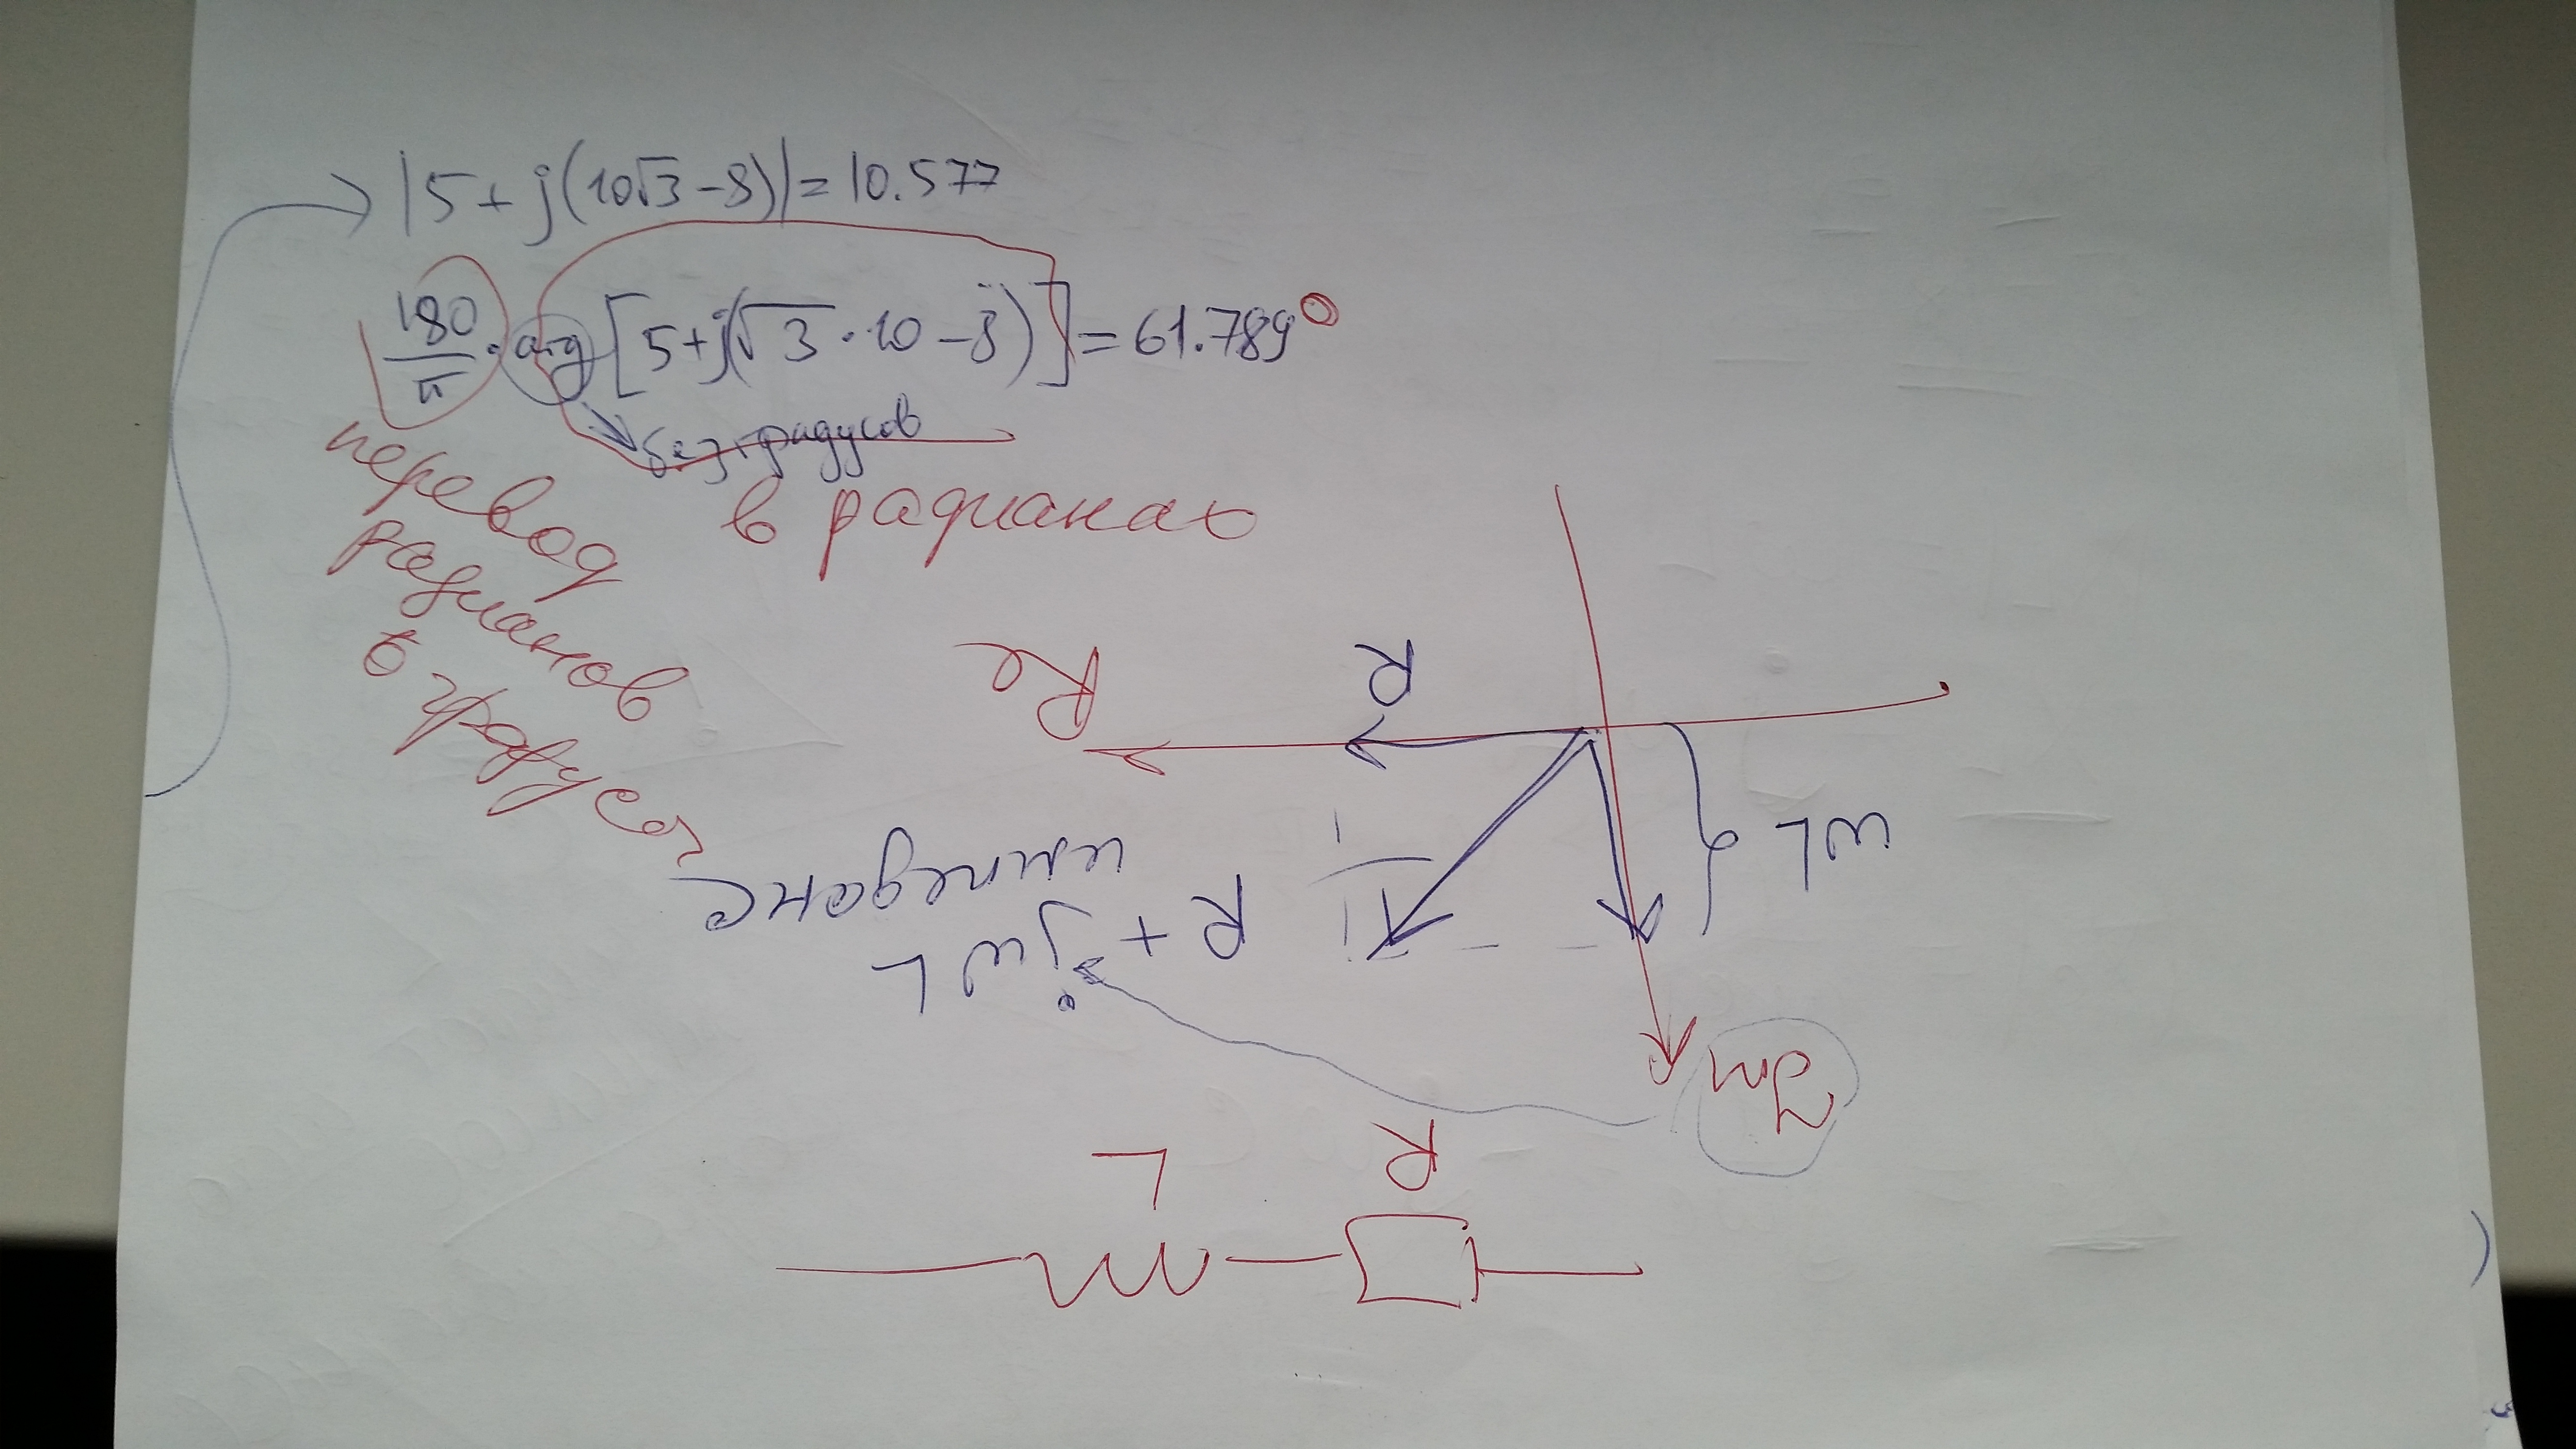 |5+j(10√3-8)|=10.577
180/π · arg[5+j(√3·10-8)]=61.789°
без градусов
в радианах
перевод
радианов
в градусы
R
L
Im
R + jωL
импеданс
ωL
R
Re